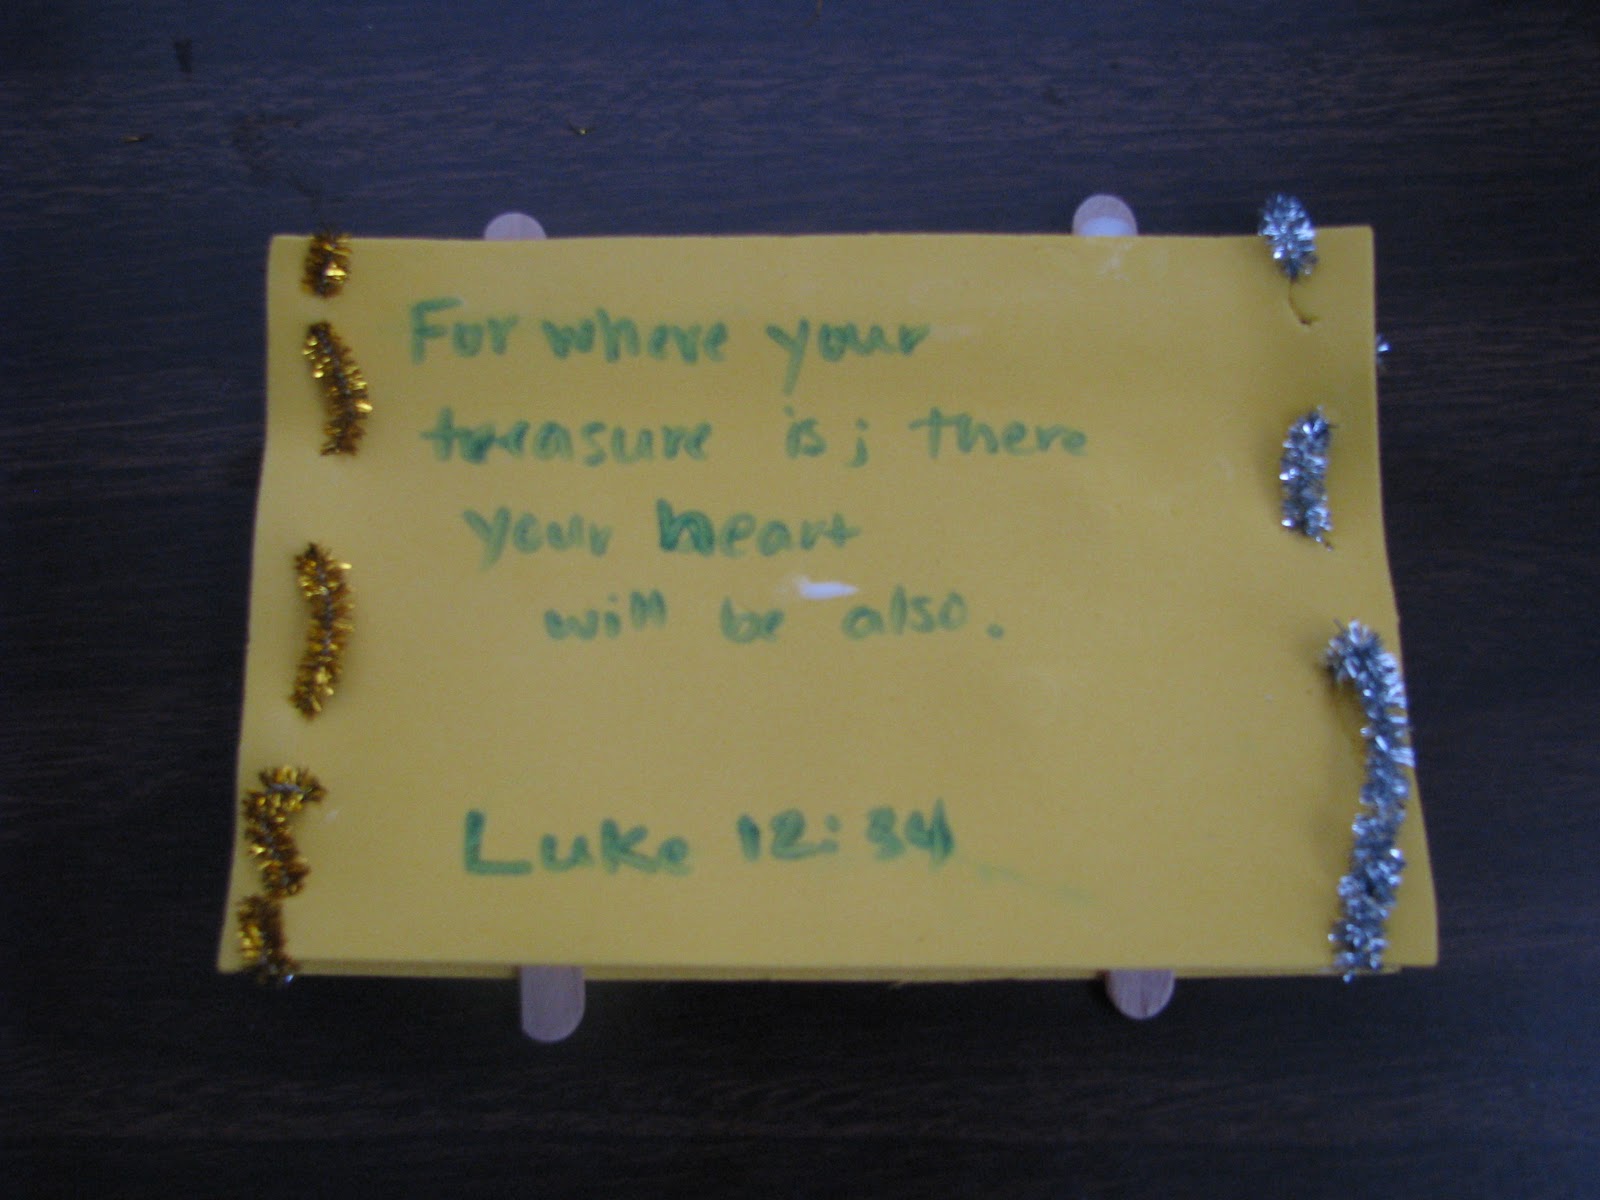 For where your
treasure is; there
your heart
will be also.
Luke 12:34